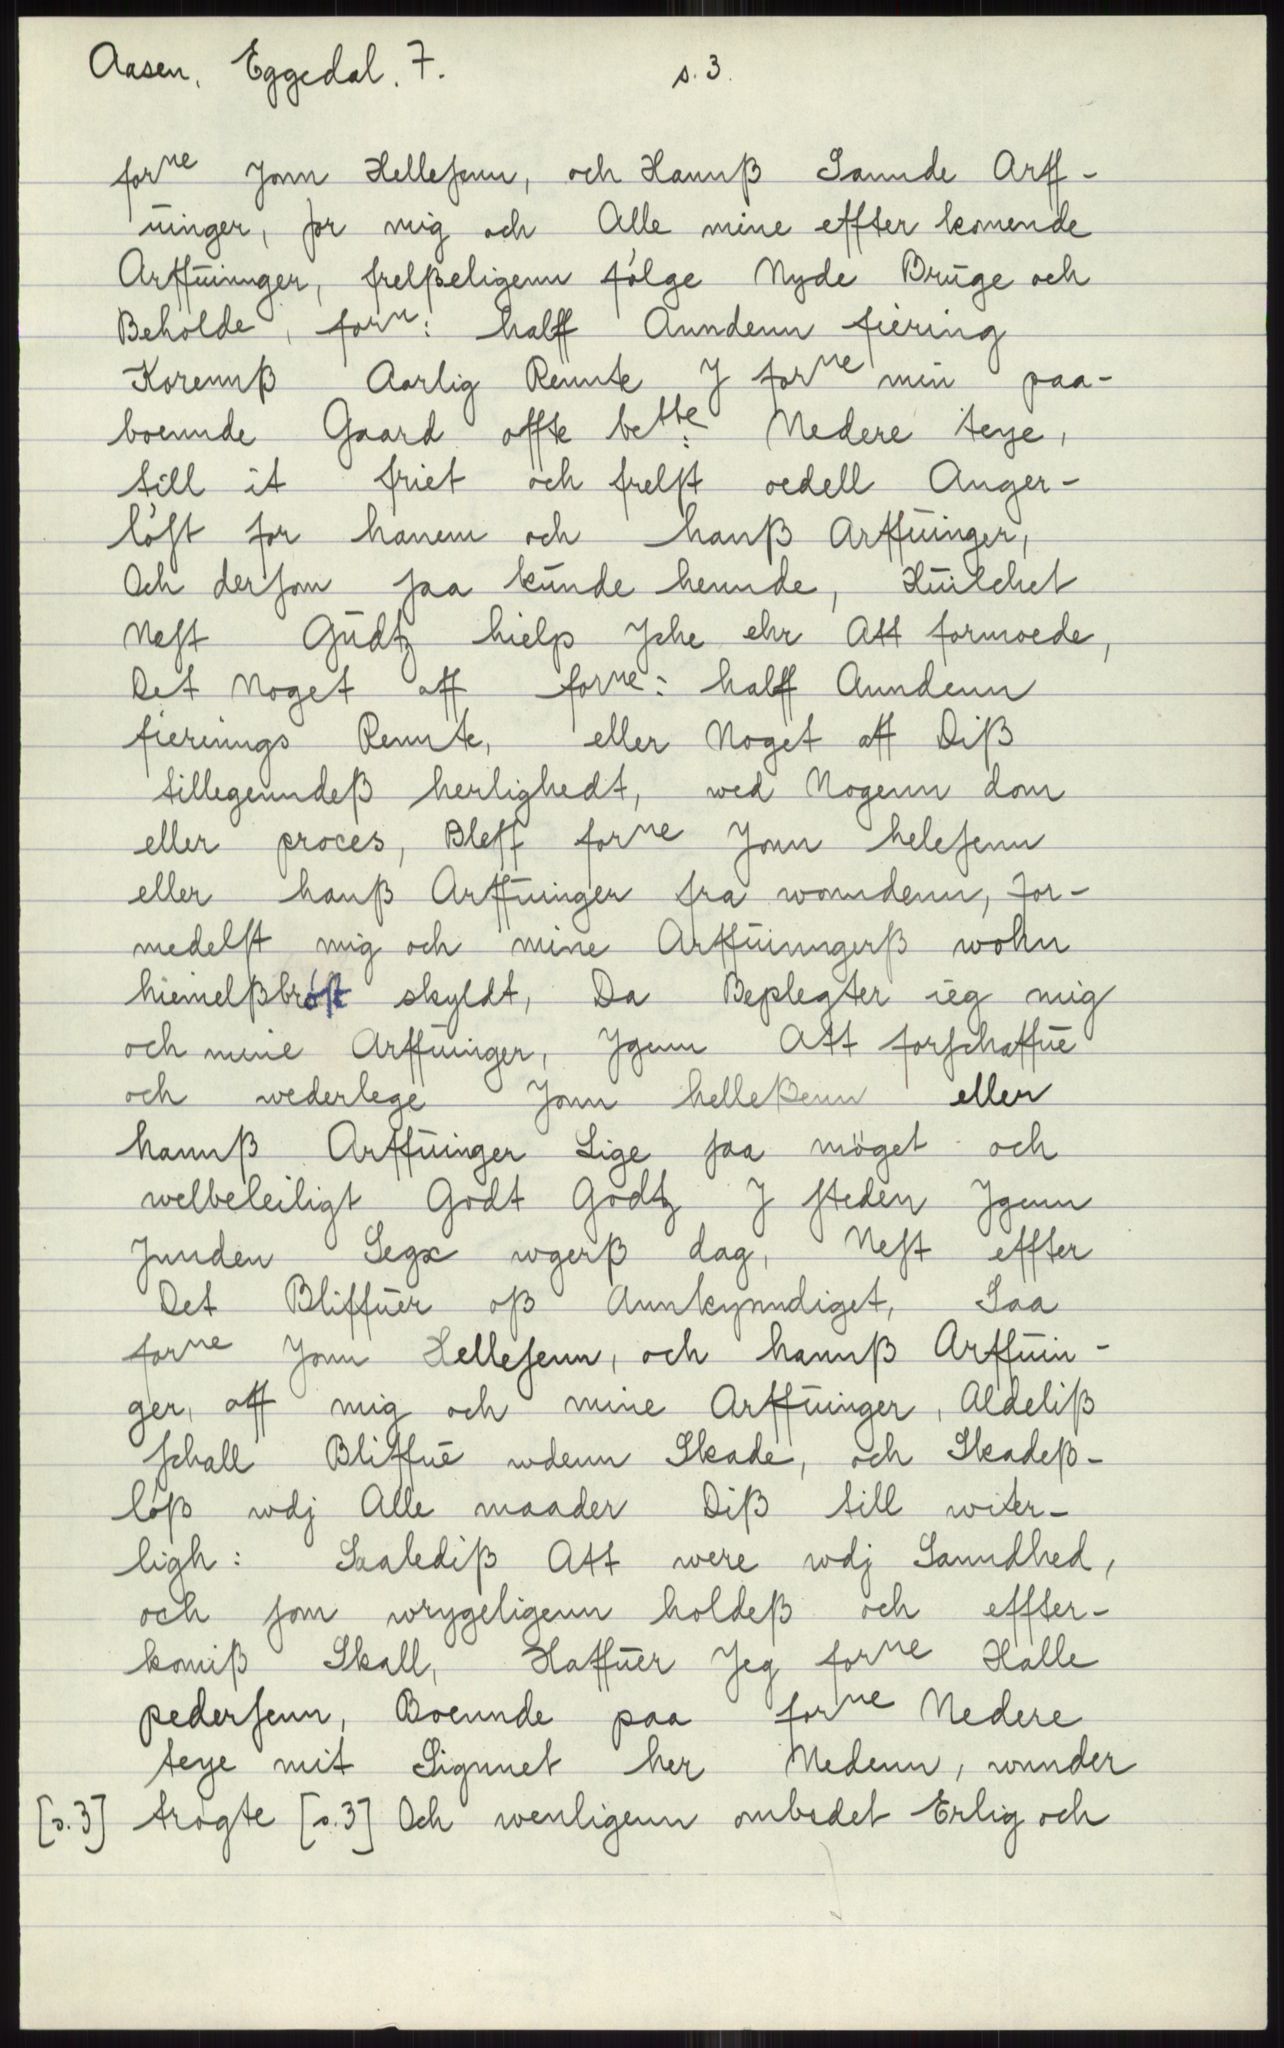 Aasen, Eggedal. 7. s. 3.
forne Jonn Helleſenn, och Hannß Sannde Arff-
ŭinger, for mig och Alle mine effter komende
Arffŭinnger, frelßeligenn følge Nyde Brŭge och
Beholde, forn: halff Anndenn fiering
Korennß Aarlig Rennte J forne min paa-
boennde Gaard offte bette: Nedere teye,
till it friet och frelſt oedell Anger-
løſt for hanem och hanß Arffŭinger,
Och derſom ſaa kŭnde hennde, Hŭilchet
Neſt Gŭdtz hielp Jche ehr Att formoede,
Det Noget aff forne: halff Anndenn
fierinngs Rennte, eller Noget aff Diß
tillegenndeß herlighedt, wed Nogenn dom
eller proces, Bleff forne Jonn heleſenn
eller hanß Arffŭinger fra wonndenn, For-
medelſt mig och mine Arffŭinngerß wohn
hiemelßbrøſt skyldt, Da Beplegter ieg mig
och mine Arffŭinger, Jgenn Att forſchaffŭe
och wederlege Jonn helleßenn eller
hannß Arffŭinger Lige ſaa møget och
welbeleiligt Godt Godtz J ſteden Jgenn
Jnnden Segx wgerß dag, Neſt effter
Det Bliffŭer oß Annkynndiget, Saa
forne Jonn Helleſenn, och hannß Arffŭin-
ger, aff mig och mine Arffŭinger, Aldeliß
ſchall Bliffŭe wdenn Skade, och Skadeß-
løß wdj Alle maader Diß till witer-
ligh: Saalediß Att were wdj Sanndhed,
och ſom wrygeligenn holdeß och effter-
komiß Skall, Haffŭer Jeg forne Halle
pederſenn, Boennde paa forne Nedere
teye mit Signnet her Nedenn, wnnder
[s. 3] trøgte [s. 3] Och wenligenn ombedet Erlig och